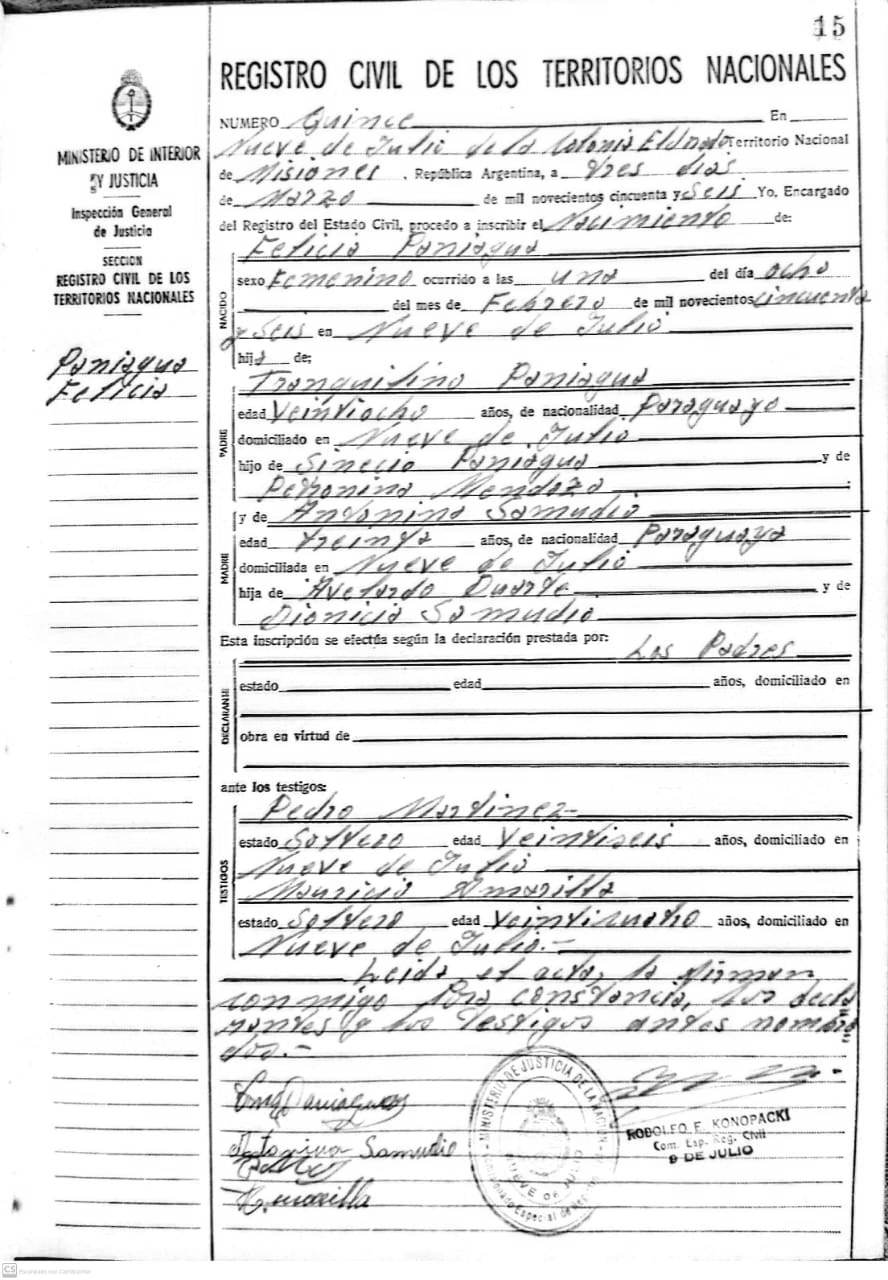 15
REGISTRO CIVIL DE LOS TERRITORIOS NACIONALES
MINISTERIO DE INTERIOR
Y JUSTICIA
Inspección General
de Justicia
SECCION
REGISTRO CIVIL DE LOS
TERRITORIOS NACIONALES
Paniagua
Felicia
NUMERO Quince En
Nueve de Julio de la Colonia Eldorado Territorio Nacional
de Misiones . República Argentina, a tres dias
de Marzo de mil novecientos cincuenta y Seis Yo, Encargado
del Registro del Estado Civil, procedo a inscribir el Nacimiento de:
NACIDO
Felicia Paniagua
sexo Femenino ocurrido a las una del día ocho
del mes de Febrero de mil novecientos cincuenta
y Seis en Nueve de Julio
hija de:
PADRE
Tranquilino Paniagua
edad Veintiocho años, de nacionalidad Paraguayo
domiciliado en Nueve de Julio
hijo de Sinecio Paniagua y de
Petronina Mendoza
MADRE
y de Antonina Samudio
edad treinta años, de nacionalidad Paraguaya
domiciliada en Nueve de Julio
hija de Avelardo Duarte y de
Dionicia Samudio
Esta inscripción se efectúa según la declaración prestada por: Los Padres
DECLARANTE
estado edad años, domiciliado en
obra en virtud de
ante los testigos:
TESTIGOS
Pedro Martinez-
estado Soltero edad Veintiseis años, domiciliado en
Nueve de Julio
Mauricio Amarilla
estado Soltero edad Veinticuatro años, domiciliado en
Nueve de Julio.-
Leida el acta, la firman
conmigo para constancia, los decla
rantes y los testigos antes nombra
dos.-
Paniagua
Antonina Samudio
Amarilla
MINISTERIO DE JUSTICIA DE LA NACION
NUEVE DE JULIO
RODOLFO E. KONOPACKI
Com. Esp. Reg. Civil
9 DE JULIO
CS Escaneado con CamScanner